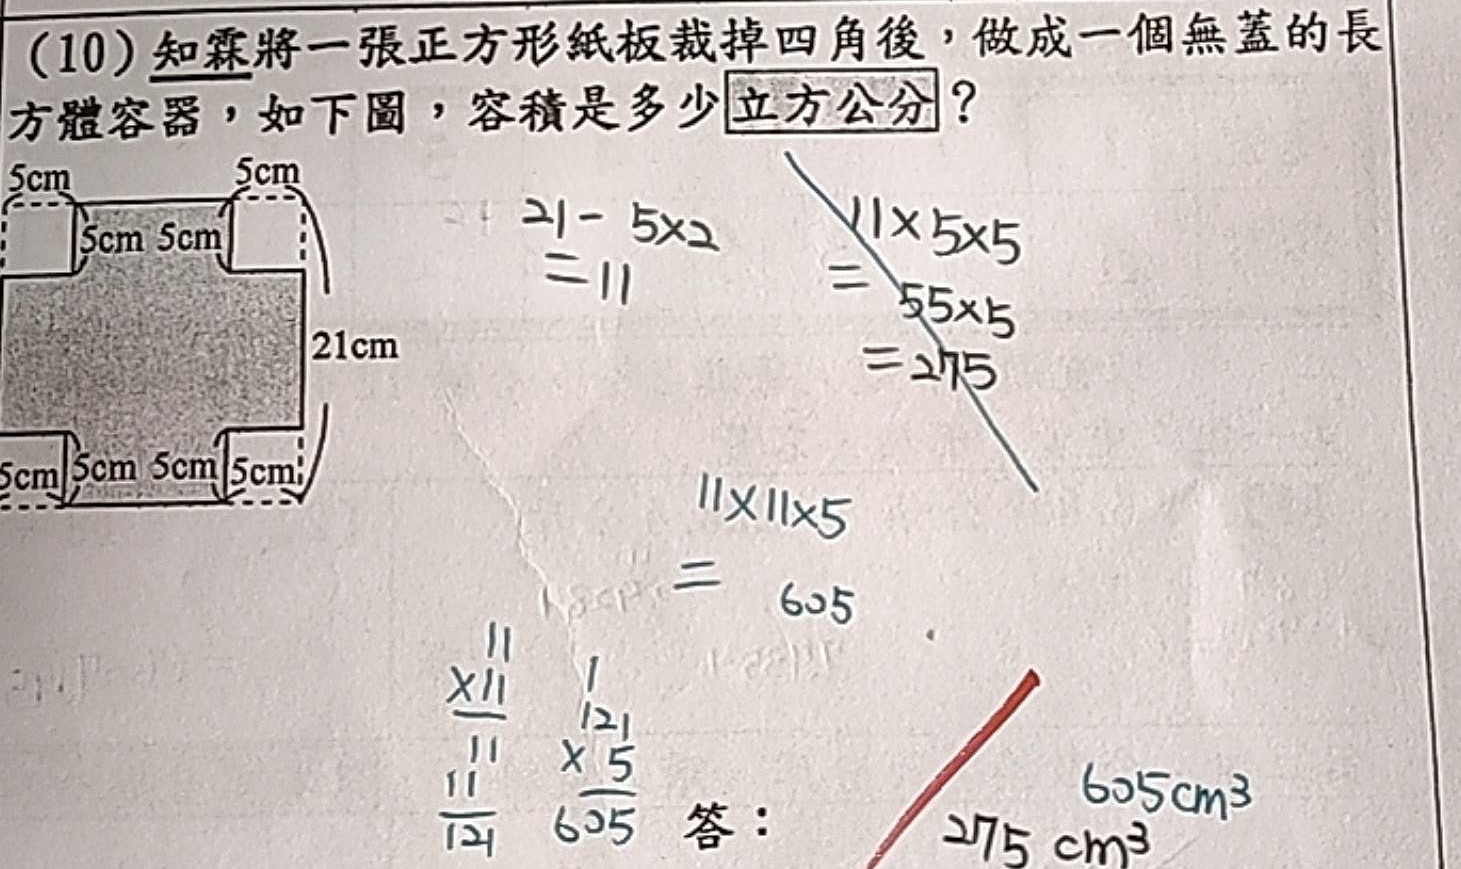 (10)知霖將一張正方形紙板裁掉四角後，做成一個無蓋的長
方體容器，如下圖，容積是多少立方公分？
5cm 5cm
5cm 5cm
21cm
5cm 5cm 5cm 5cm
21- 5×2
=11
11×5×5
= 55×5
=275
11×11×5
= 605
11
×11
11
11
121
1
121
× 5
605
答：
605cm³
275 cm³